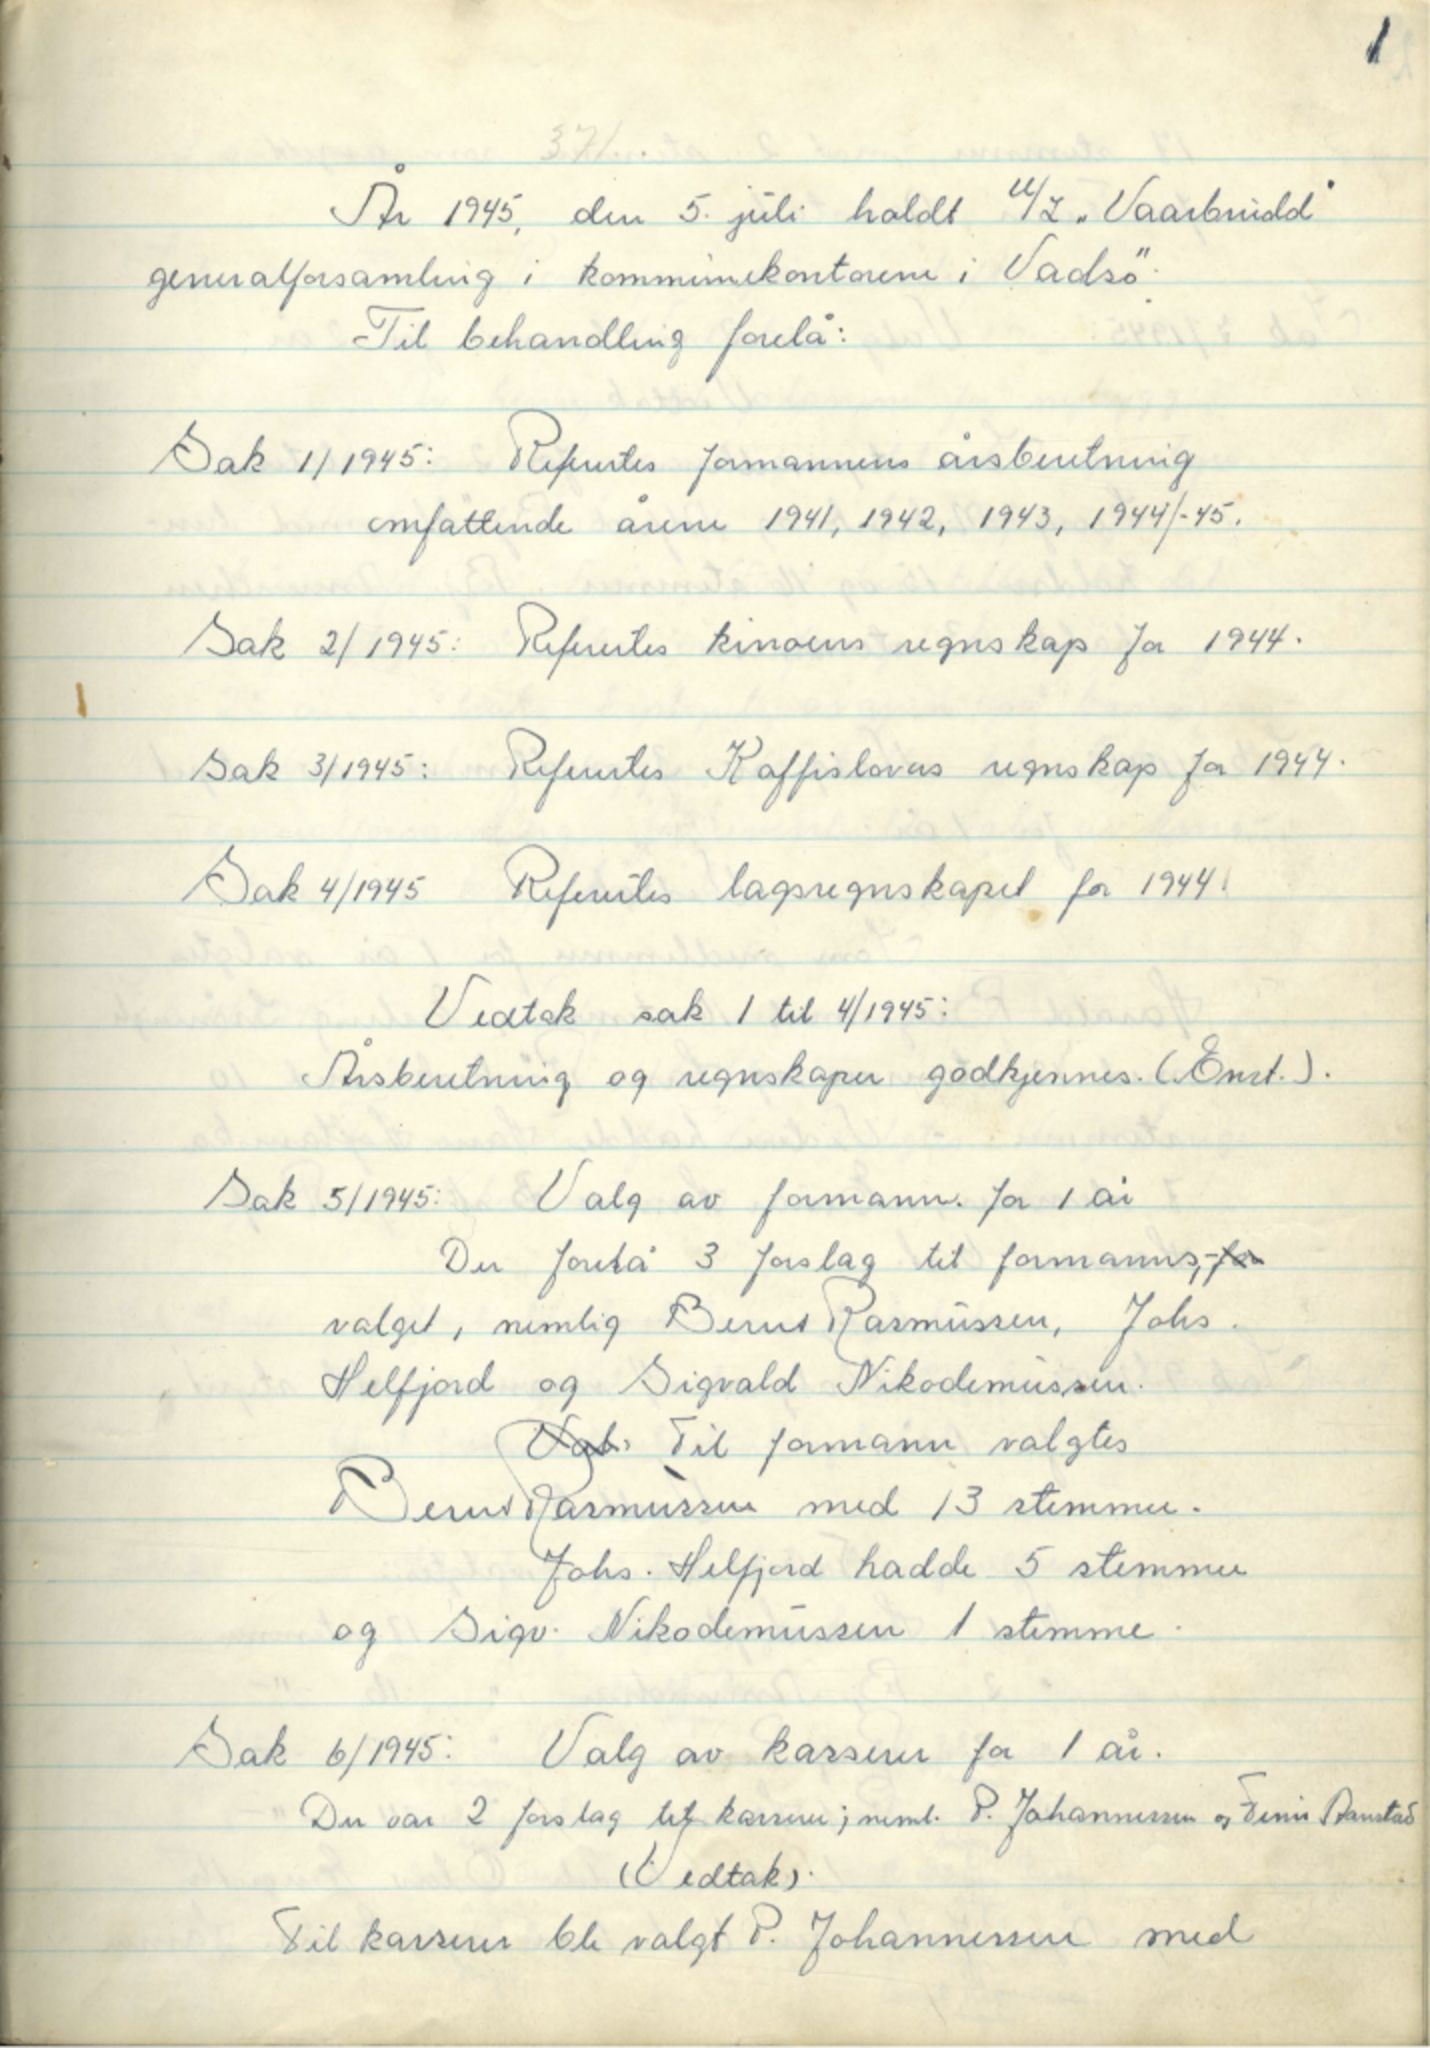 1
37/..
År 1945, den 5. juli holdt U/L „Vaarbrudd"
generalforsamling i kommunekontorene i Vadsö.
Til behandling forelå:
Sak 1/1945: Refertes formannens årsberetning
omfattende årene 1941, 1942, 1943, 1944/-45.
Sak 2/1945: Refertes kinoens regnskap for 1944.
Sak 3/1945: Refertes Kaffistovas regnskap for 1944.
Sak 4/1945 Refertes lagsregnskapet for 1944.
Vedtak sak 1 til 4/1945:
Årsberetning og regnskaper godkjennes. (Enst.).
Sak 5/1945: Valg av formann. for 1 år
Der forelå 3 forslag til formanns,-for
valget, nemlig Bernt Rasmussen, Johs.
Helfjord og Sigvald Nikodemussen.
Til formann valgtes
Bernt Rasmussen med 13 stemmer.
Johs. Helfjord hadde 5 stemmer
og Sigv. Nikodemussen 1 stemme.
Sak 6/1945: Valg av kasserer for 1 år.
Der var 2 forslag til kasserer; neml. P. Johannessen og Finn
(Vedtak).
Til kasserer ble valgt P. Johannessen med